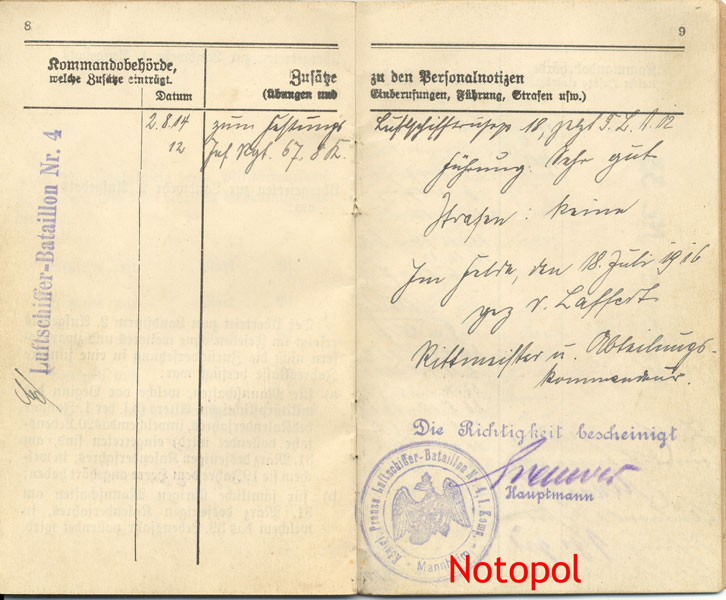 8
Kommandobehörde,
welche Zusätze einträgt.
Datum
Zusätze
(Übungen und
2.8.14 zum Festungs
12 Inf Rgt. 67. 8 K.
Luftschiffer-Bataillon Nr. 4
9
zu den Personalnotizen
Einberufungen, Führung, Strafen usw.)
Luftschifftrupp 18, jetzt F. L. A. 12
Führung: Sehr gut
Strafen: keine
Im Felde, den 18. Juli 1916
gez v. Laffert
Rittmeister u. Abteilungs-
kommandeur.
Die Richtigkeit bescheinigt
Hauptmann
Königl. Preuss. Luftschiffer-Bataillon Nr. 4, 1. Komp.
Mannheim
Notopol